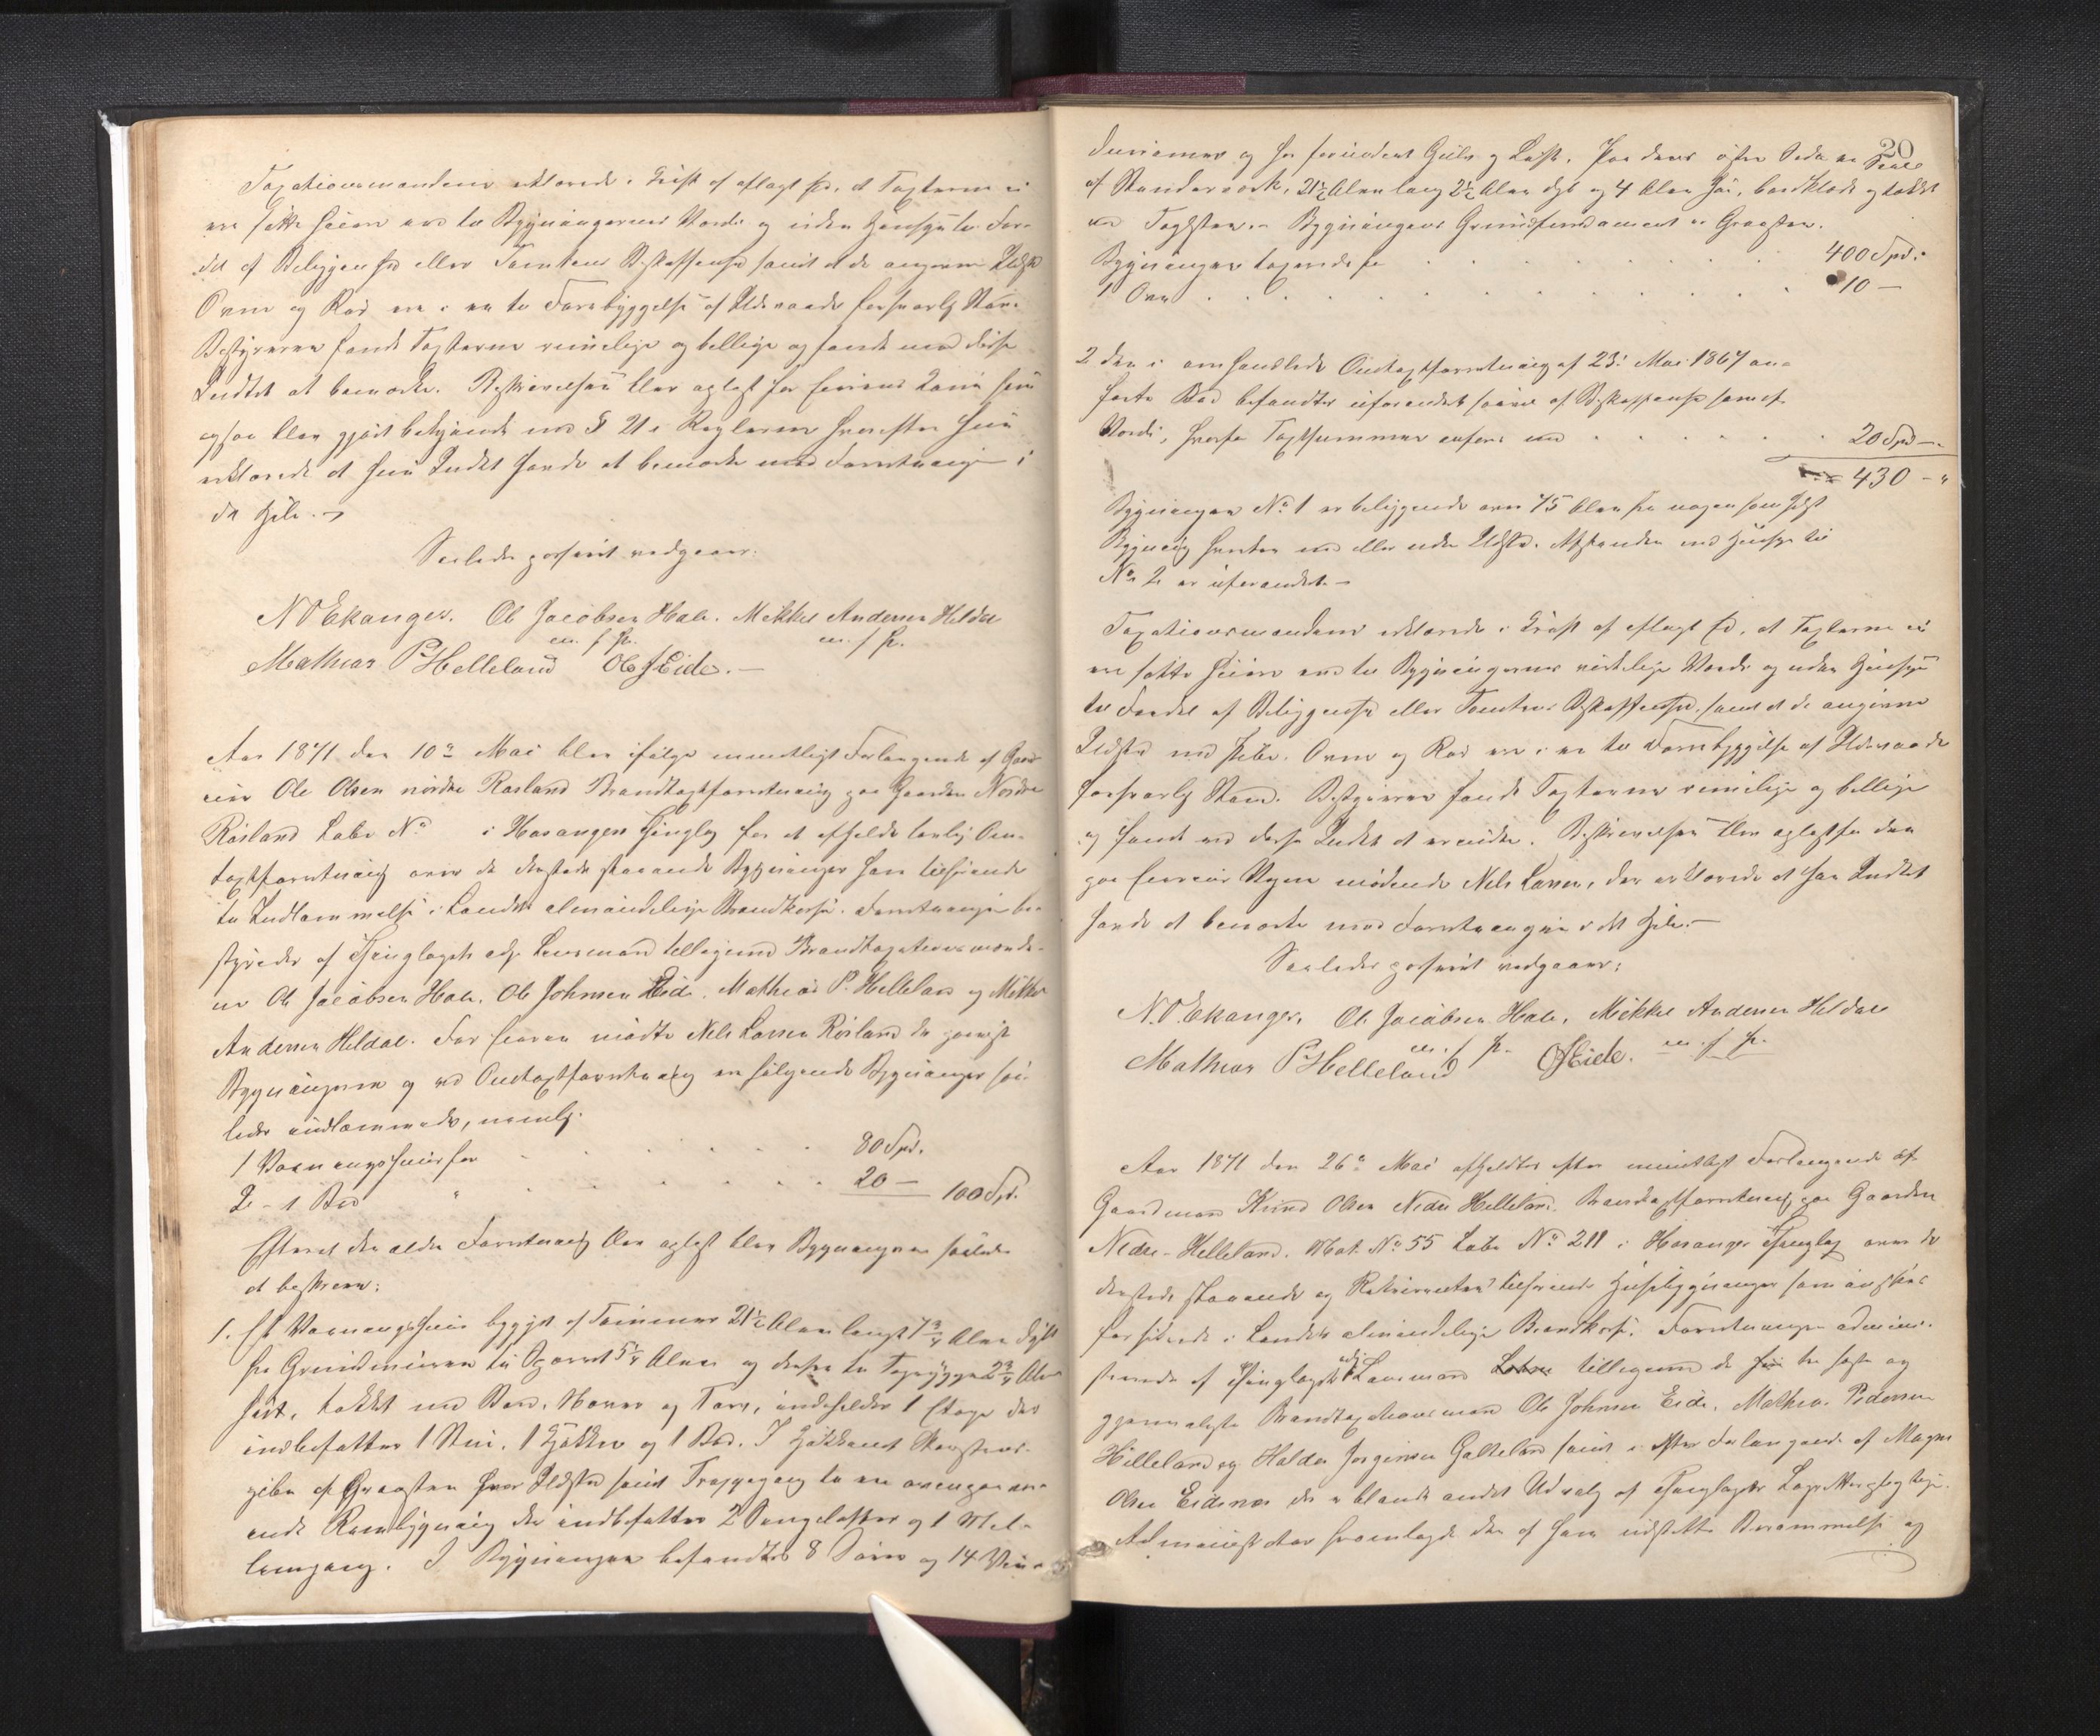 Taxationsmændene erklærede i Kraft af aflagt Ed, at Taxterne ei
ere satte høiere end til Bygningernes Værdi og uden Hensyn til For-
del af Beliggenhed eller Tomtens Beskaffenhed samt at de angivne Ildsted
Ovne og Rør ere i en til Forebyggelse af Ildsvaade forsvarlig Stand.
Bestyreren fandt Taxterne rimelige og billige og fandt ved disse
Intet at bemærke. Beskrivelsen blev oplæst for Eieren
ogsaa blev gjort bekjendt med § 21 i hvorefter hun
erklærede at hun Intet havde at bemærke mod Forretningen i
det Hele. —
Saaledes passeret vedgaaer:
N O Ekanger. Ole Jacobsen Hole. Mikkel Andersen Heldal
m. f. P. m. f. P.
Mathias P Helleland OlsEide. —
Aar 1871 den 10de Mai blev ifølge mundtligt Forlangende af Gaard-
eier Ole Olsen nordre Rosland Brandtaxtforretning paa Gaarden Nordre
Rosland Løbe No i Hosanger Thinglag for at afholde lovlig Om-
taxtforretning over de dersteds staaende Bygninger ham tilhørende
til Indlemmelse i Landets almindelige Brandkasse. Forretningen be-
styredes af Thinglagets adj. Lensmand tilligemed Brandtaxationsmænde-
ne Ole Jacobsen Hole, Ole Johnsen Eide, Mathias P. Helleland og Mikkel
Andersen Heldal. For Eieren mødte Nels Larsen Rosland der paaviste
Bygningerne og ved Omtaxtforretning ere følgende Bygninger saa-
ledes indlemmede, nemlig:
1 Vaaningshuus for . . . . . . 80 Spd.
2 - 1 Bod " . . . . . . 20 — 100 Spd.
Efterat den ældre Forretning blev oplæst blev Bygningerne saaledes
at beskrive:
1. Et Vaaningshuus bygget af Tømmer 21½ Alen langt 7¾ Alen dybt
fra Grundmuren til Opgavet 5¼ Alen og derfra til Tagryggen 2¾ Alen
høit, tækket med Bord, Næver og Tørv, indeholder 1 Etage der
indbefatter 1 Stue, 1 Kjøkken og 1 Bod. I Kjøkkenet Skorsteens-
pibe af Graasten hvor Ildsted samt Trappegang til en ovenpaa væ-
ende Rambygning der indbefatter 2 Sengelofter og 1 Mel-
lemgang. I Bygningen befandtes 8 Døre og 14 Vin-
20
duerammer og har fornødent Gulv og Loft. Paa dens østre Side er Sval
af Standerværk, 21½ Alen lang 2½ Alen dyb og 4 Alen høi, bordklædt og tækket
med Tagsten. Bygningens Grundfundament er Graasten.
Bygningen taxeredes for . . . . . . 400 Spd.
1 Ovn . . . . . . 10 —
2 den i omhandlede Omtaxtforretning af 23de Mai 1867 an-
førte Bod befandtes uforandret saavel af Beskaffenhed som af
Værdi, hvorfor Taxtsummen anføres med . . . . . . 20 Spd —
430 - "
Bygningen No 1 er beliggende over 75 Alen fra nogen som helst
Bygning hverken med eller uden Ildsted. Afstanden med Hensyn til
No 2 er uforandret. —
Taxationsmændene erklærede i Kraft af aflagt Ed, at Taxterne ei
ere satte høiere end til Bygningernes virkelige Værdi og uden Hensyn
til Fordel af Beliggenhed eller Tomtens Beskaffenhed, samt at de angivne
Ildsted med Piber, Ovne og Rør ere i en til Forebyggelse af Ildsvaade
forsvarlig Stand. Bestyreren fandt Taxterne rimelige og billige
og fandt ved disse Intet at erindre. Beskrivelsen blev oplæst for den
paa Eierens Vegne mødende Nels Larsen, der erklærede at han Intet
havde at bemærke mod Forretningen i det Hele. —
Saaledes passeret vedgaaer:
N. O. Ekanger, Ole Jacobsen Hole, Mikkel Andersen Heldal
m. f. P. m. f. P.
Mathias P Helleland OJEide.
Aar 1871 den 26de Mai afholdtes efter mundtligt Forlangende af
Gaardmand Knud Olsen Nedre Helleland. Brandtaxtforretning paa Gaarden
Nedre-Helleland. Mat. No 55 Løbe No 211 i Hosanger Thinglag over de
dersteds staaende og Rekvirenten tilhørende Huusbygninger som ønskes
forsikrede i Landets almindelige Brandkasse. Forretningen admini-
streredes af Thinglagets adj. Lensmand tilligemed de tre faste og
gjenvalgte Brandtaxationsmænd Ole Johnsen Eide, Mathias Pedersen
Helleland og Haldor Jørgensen Galteland samt efter Forlangende af Magne
Olsen Eidsnes der er blandt andet Udvalg af Thinglagets
Administrator fremlagde den af ham udstedte Berammelse og